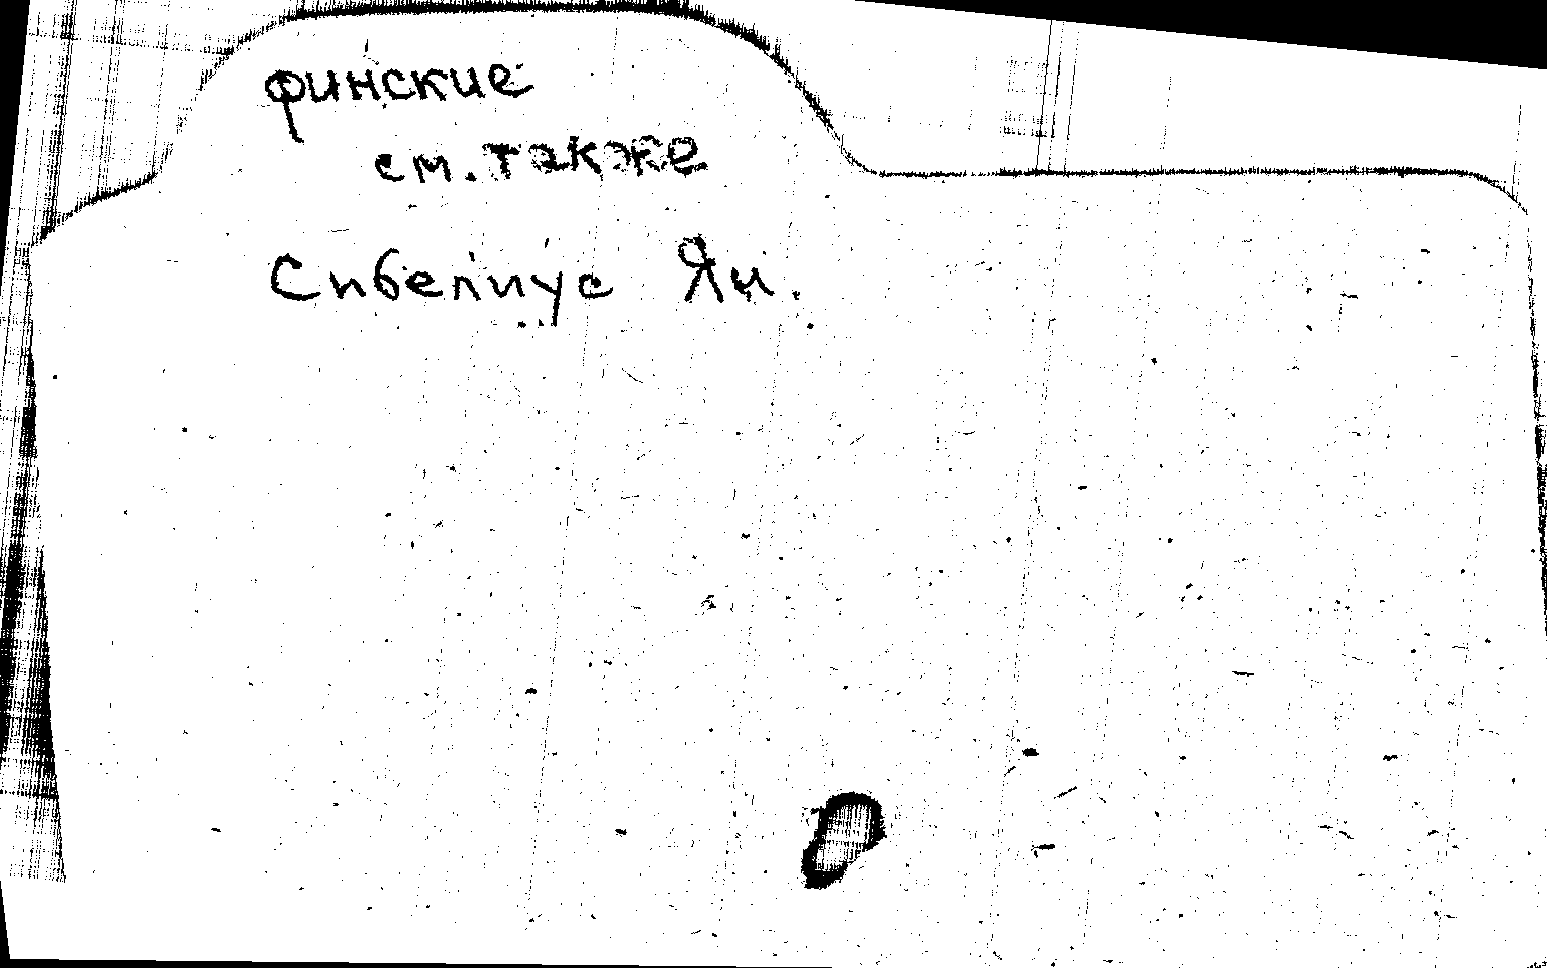 финские
см. также
Сибелиус Ян.